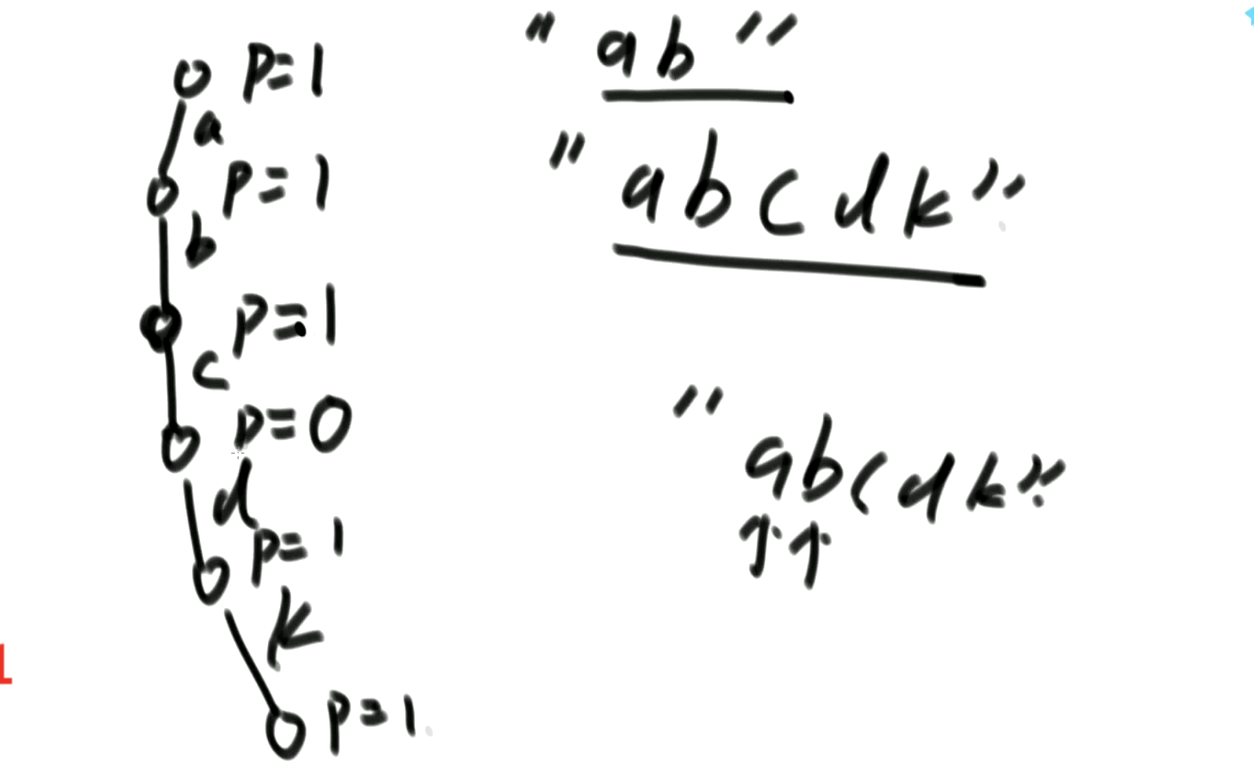 p=1
a
p=1
b
p=1
c
p=0
d
p=1
k
p=1
"ab"
"abcdk"
"abcdk"
↑↑
1